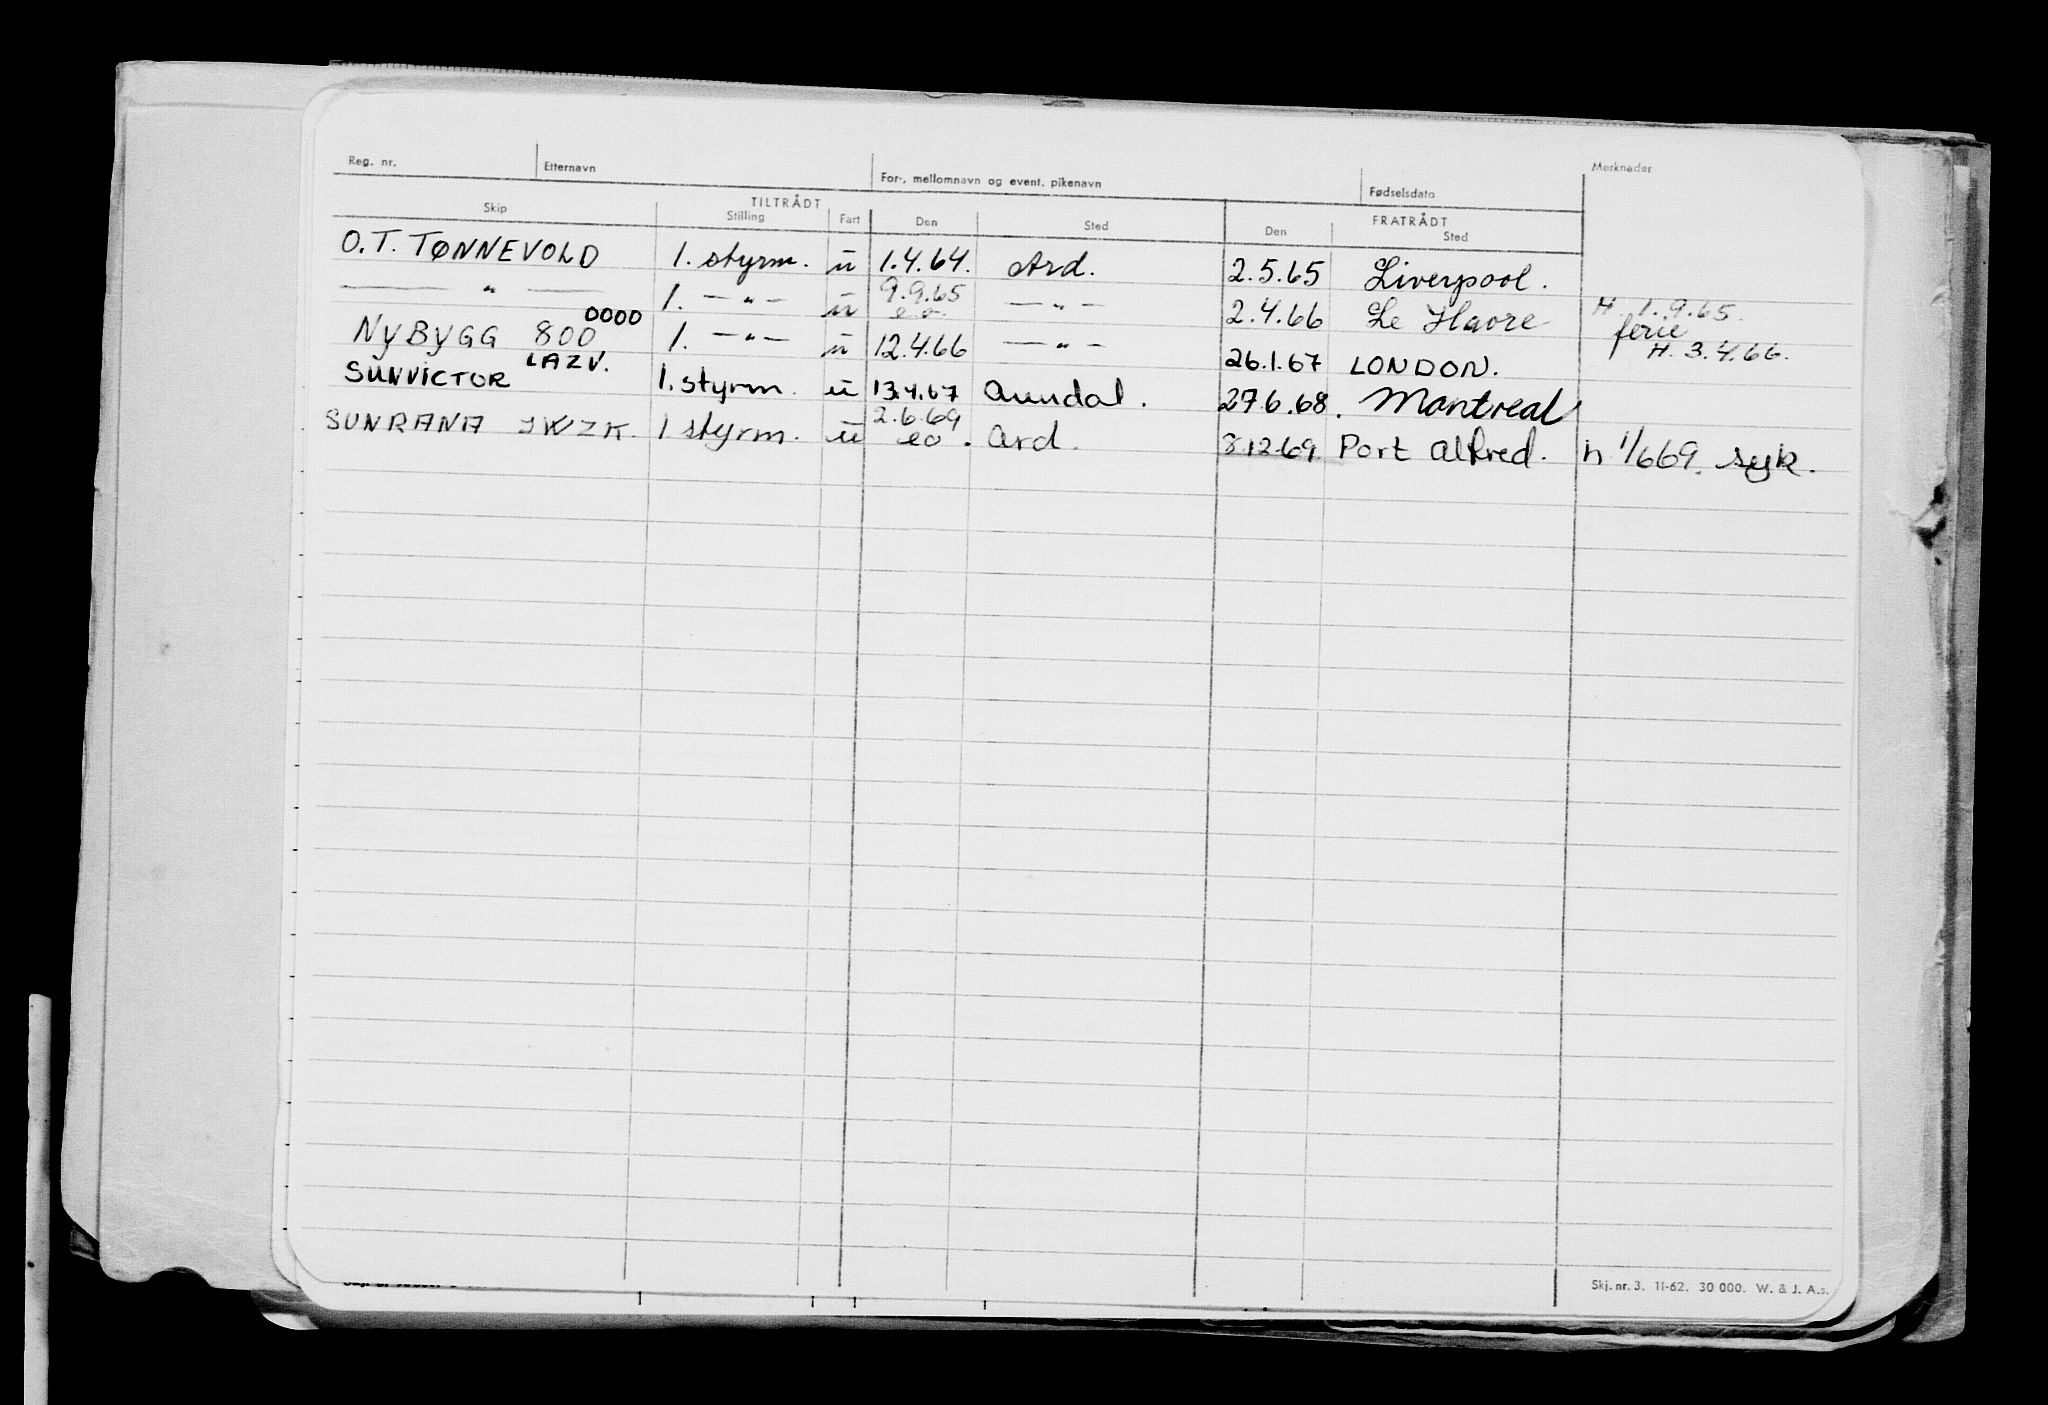 Reg. nr. Etternavn For-, mellomnavn og event. pikenavn Fødselsdato Merknader
TILTRÅDT FRATRÅDT
Skip Stilling Fart Den Sted Den Sted
O.T. TØNNEVOLD 1. styrm. u 1.4.64. Ard. 2.5.65 Liverpool.
— " — 1. — " — u 9.9.65 e.o. — " — 2.4.66 Le Havre H. 1.9.65. ferie
NYBYGG 800 0000 1. — " — u 12.4.66 — " — 26.1.67 LONDON. H. 3.4.66.
SUNVICTOR LAZV. 1. styrm. u 13.4.67 Arendal. 27.6.68. Montreal
SUNRANA JWZK. 1 styrm. u 2.6.69 eo. Ard. 8.12.69. Port Alfred. h 1/669. syk.
Skj. nr. 3. 11-62. 30 000. W. & J. A.s.